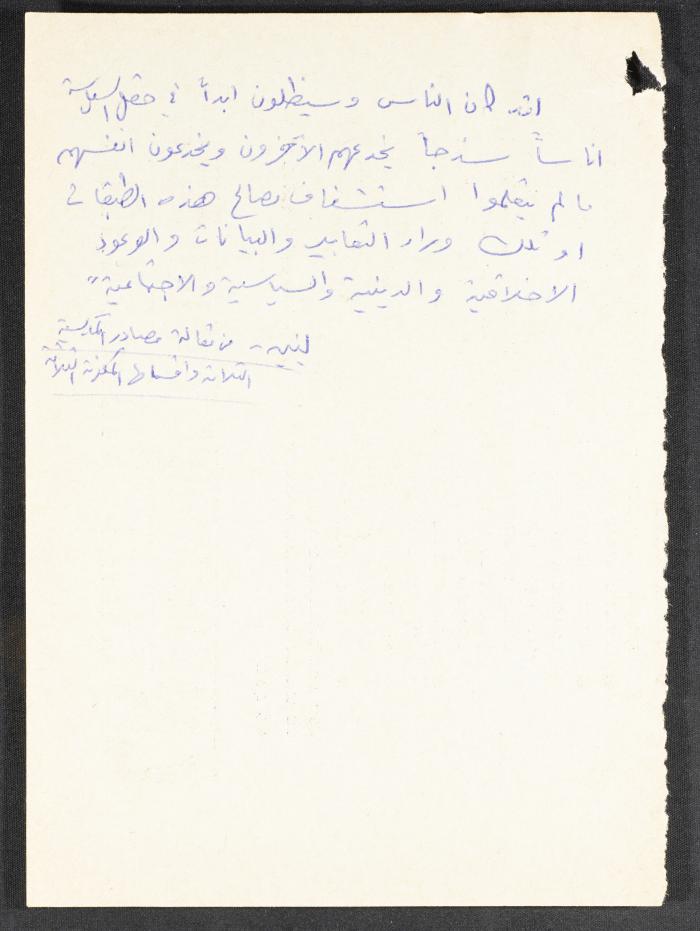 لقد كان الناس وسيظلون ابداً في حقل السياسة
اناساً سذجاً يخدعهم الآخرون ويخدعون انفسهم
ما لم يتعلموا استشفاف مصالح هذه الطبقات
او تلك وراء التعابير والبيانات والوعود
الاخلاقية والدينية والسياسية والاجتماعية"
لينين - من مقالة مصادر الماركسية
الثلاثة واقسامها المكونة الثلاثة